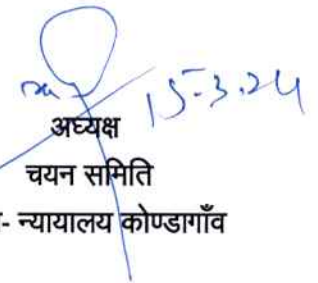 15.3.24
अध्यक्ष
चयन समिति
- न्यायालय कोण्डागाँव